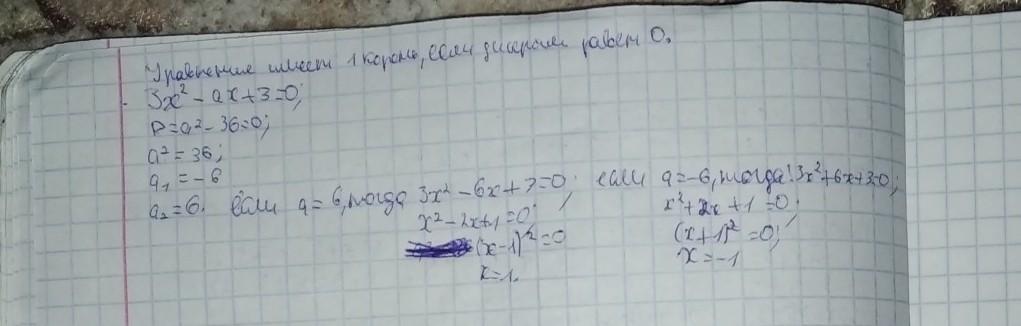 Уравнение имеет 1 корень, если дискрим равен 0.
3x² - ax + 3 = 0;
D = a² - 36 = 0;
a² = 36;
a₁ = -6
a₂ = 6. если a = 6, тогда 3x² - 6x + 3 = 0; если a = -6, тогда: 3x² + 6x + 3 = 0;
x² - 2x + 1 = 0; x² + 2x + 1 = 0;
(x - 1)² = 0 (x + 1)² = 0;
x = 1. x = -1